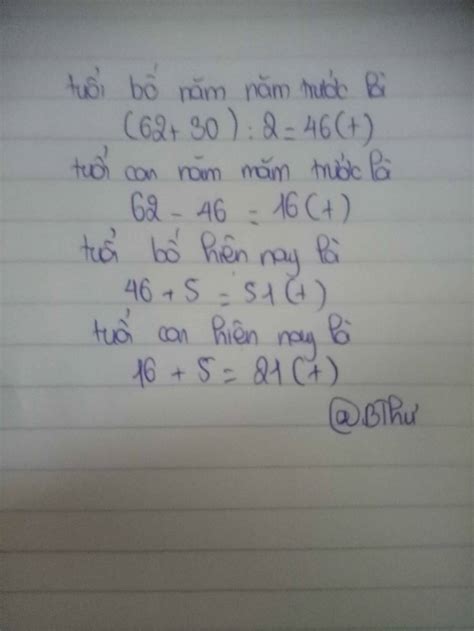 tuổi bố năm năm trước là
(62+30) : 2 = 46(t)
tuổi con năm măm trước là
62 - 46 = 16(t)
tuổi bố hiện nay là
46 + 5 = 51(t)
tuổi con hiện nay là
16 + 5 = 21(t)
@BThư